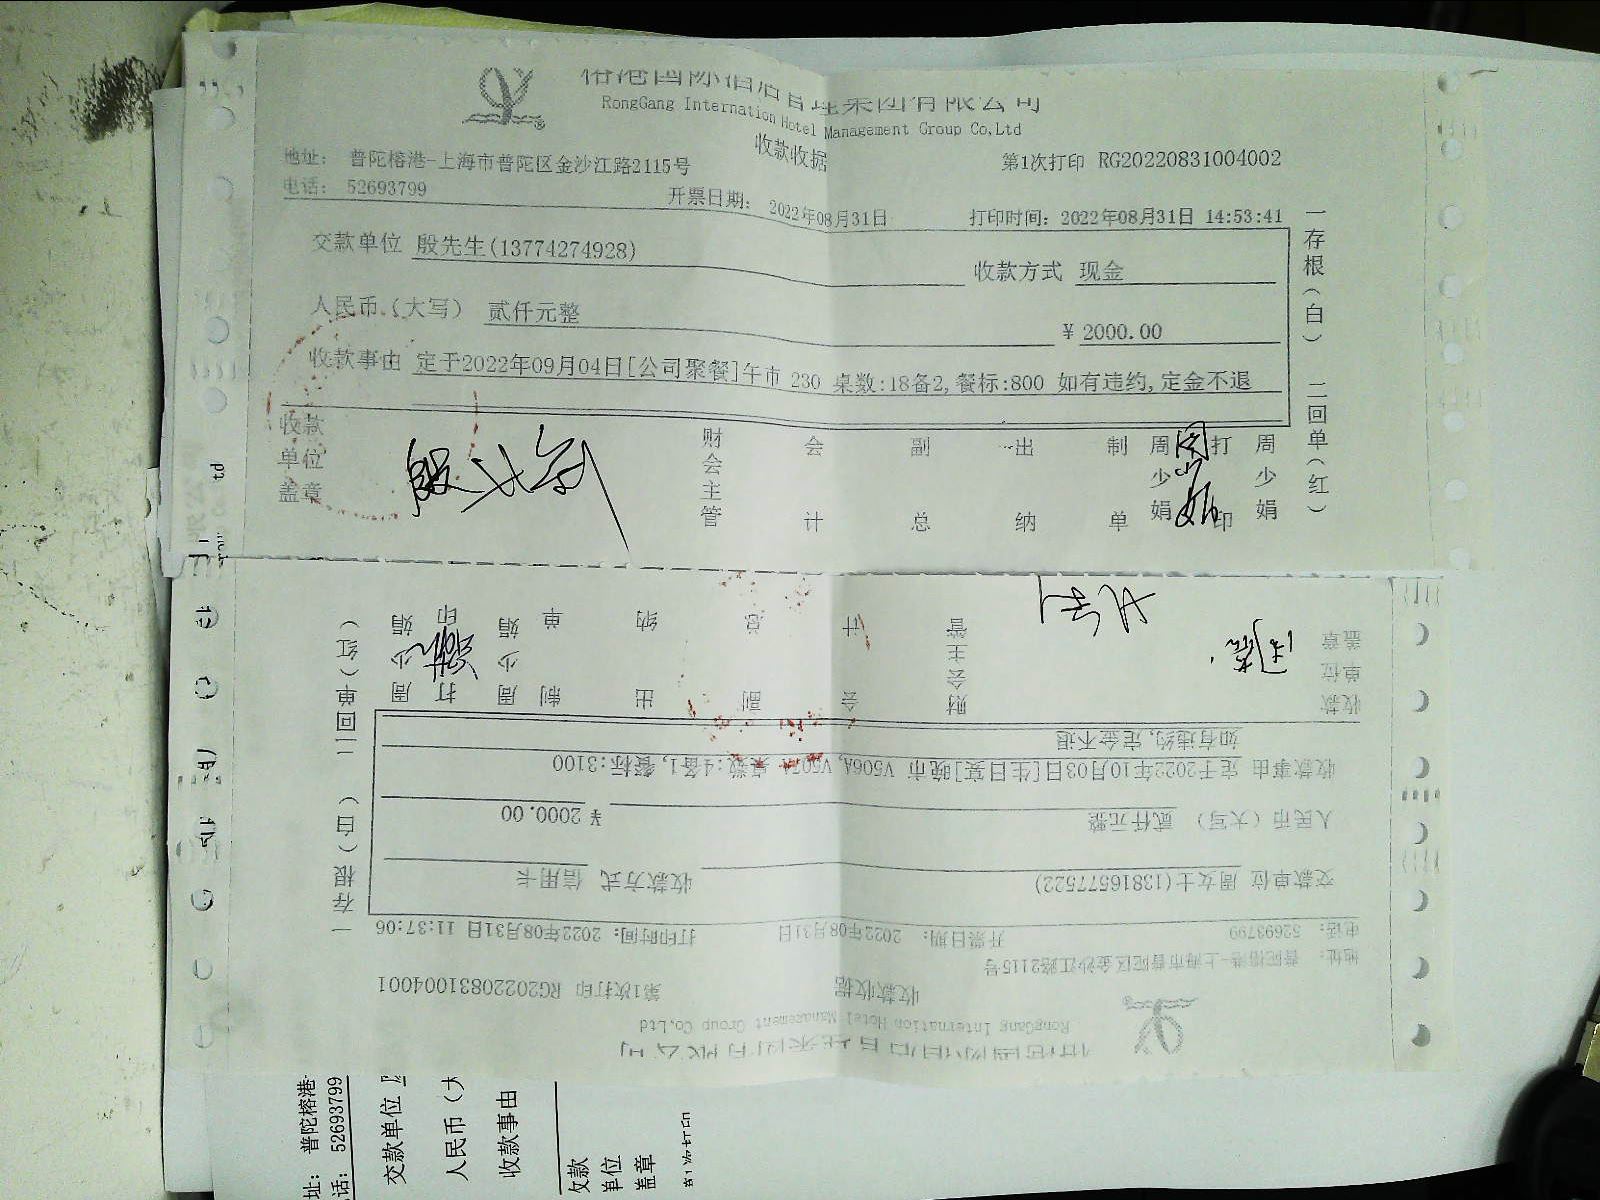 榕港国际酒店管理集团有限公司
RongGang International Hotel Management Group Co,Ltd
收款收据
地址： 普陀榕港-上海市普陀区金沙江路2115号
第1次打印 RG20220831004002
电话： 52693799
开票日期： 2022年08月31日
打印时间：2022年08月31日 14:53:41
交款单位 殷先生(13774274928)
收款方式 现金
人民币（大写） 贰仟元整
¥ 2000.00
收款事由 定于2022年09月04日[公司聚餐]午市 230 桌数:18备2,餐标:800 如有违约,定金不退
收款单位盖章
财会主管
会计
副总
出纳
制单
周少娟
打印
周少娟
一存根（白） 二回单（红）
榕港国际酒店管理集团有限公司
RongGang International Hotel Management Group Co,Ltd
收款收据
第1次打印 RG20220831004001
地址： 普陀榕港-上海市普陀区金沙江路2115号
电话： 52693799
开票日期： 2022年08月31日
打印时间：2022年08月31日 11:37:06
交款单位 周女士(13816577522)
收款方式 信用卡
人民币（大写） 贰仟元整
¥ 2000.00
收款事由 定于2022年10月03日[生日宴]晚市 V506A, V507A 桌数:4备1,餐标:3100
如有违约,定金不退
收款单位盖章
财会主管
会计
副总
出纳
制单
周少娟
打印
周少娟
一存根（白） 二回单（红）
td
址： 普陀榕港-
话： 52693799
交款单位
人民币（大
收款事由
收款
单位
盖章
第1次打印